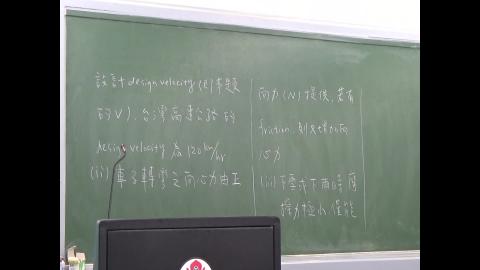 設計design velocity(即本題
的V), 台灣高速公路的
design velocity 為 120 km/hr
(ii) 車子轉彎之向心力由正
向力(N)提供, 若有
friction, 則為增加向
心力
(iii) 下雪或下雨時摩
擦力極小, 僅能